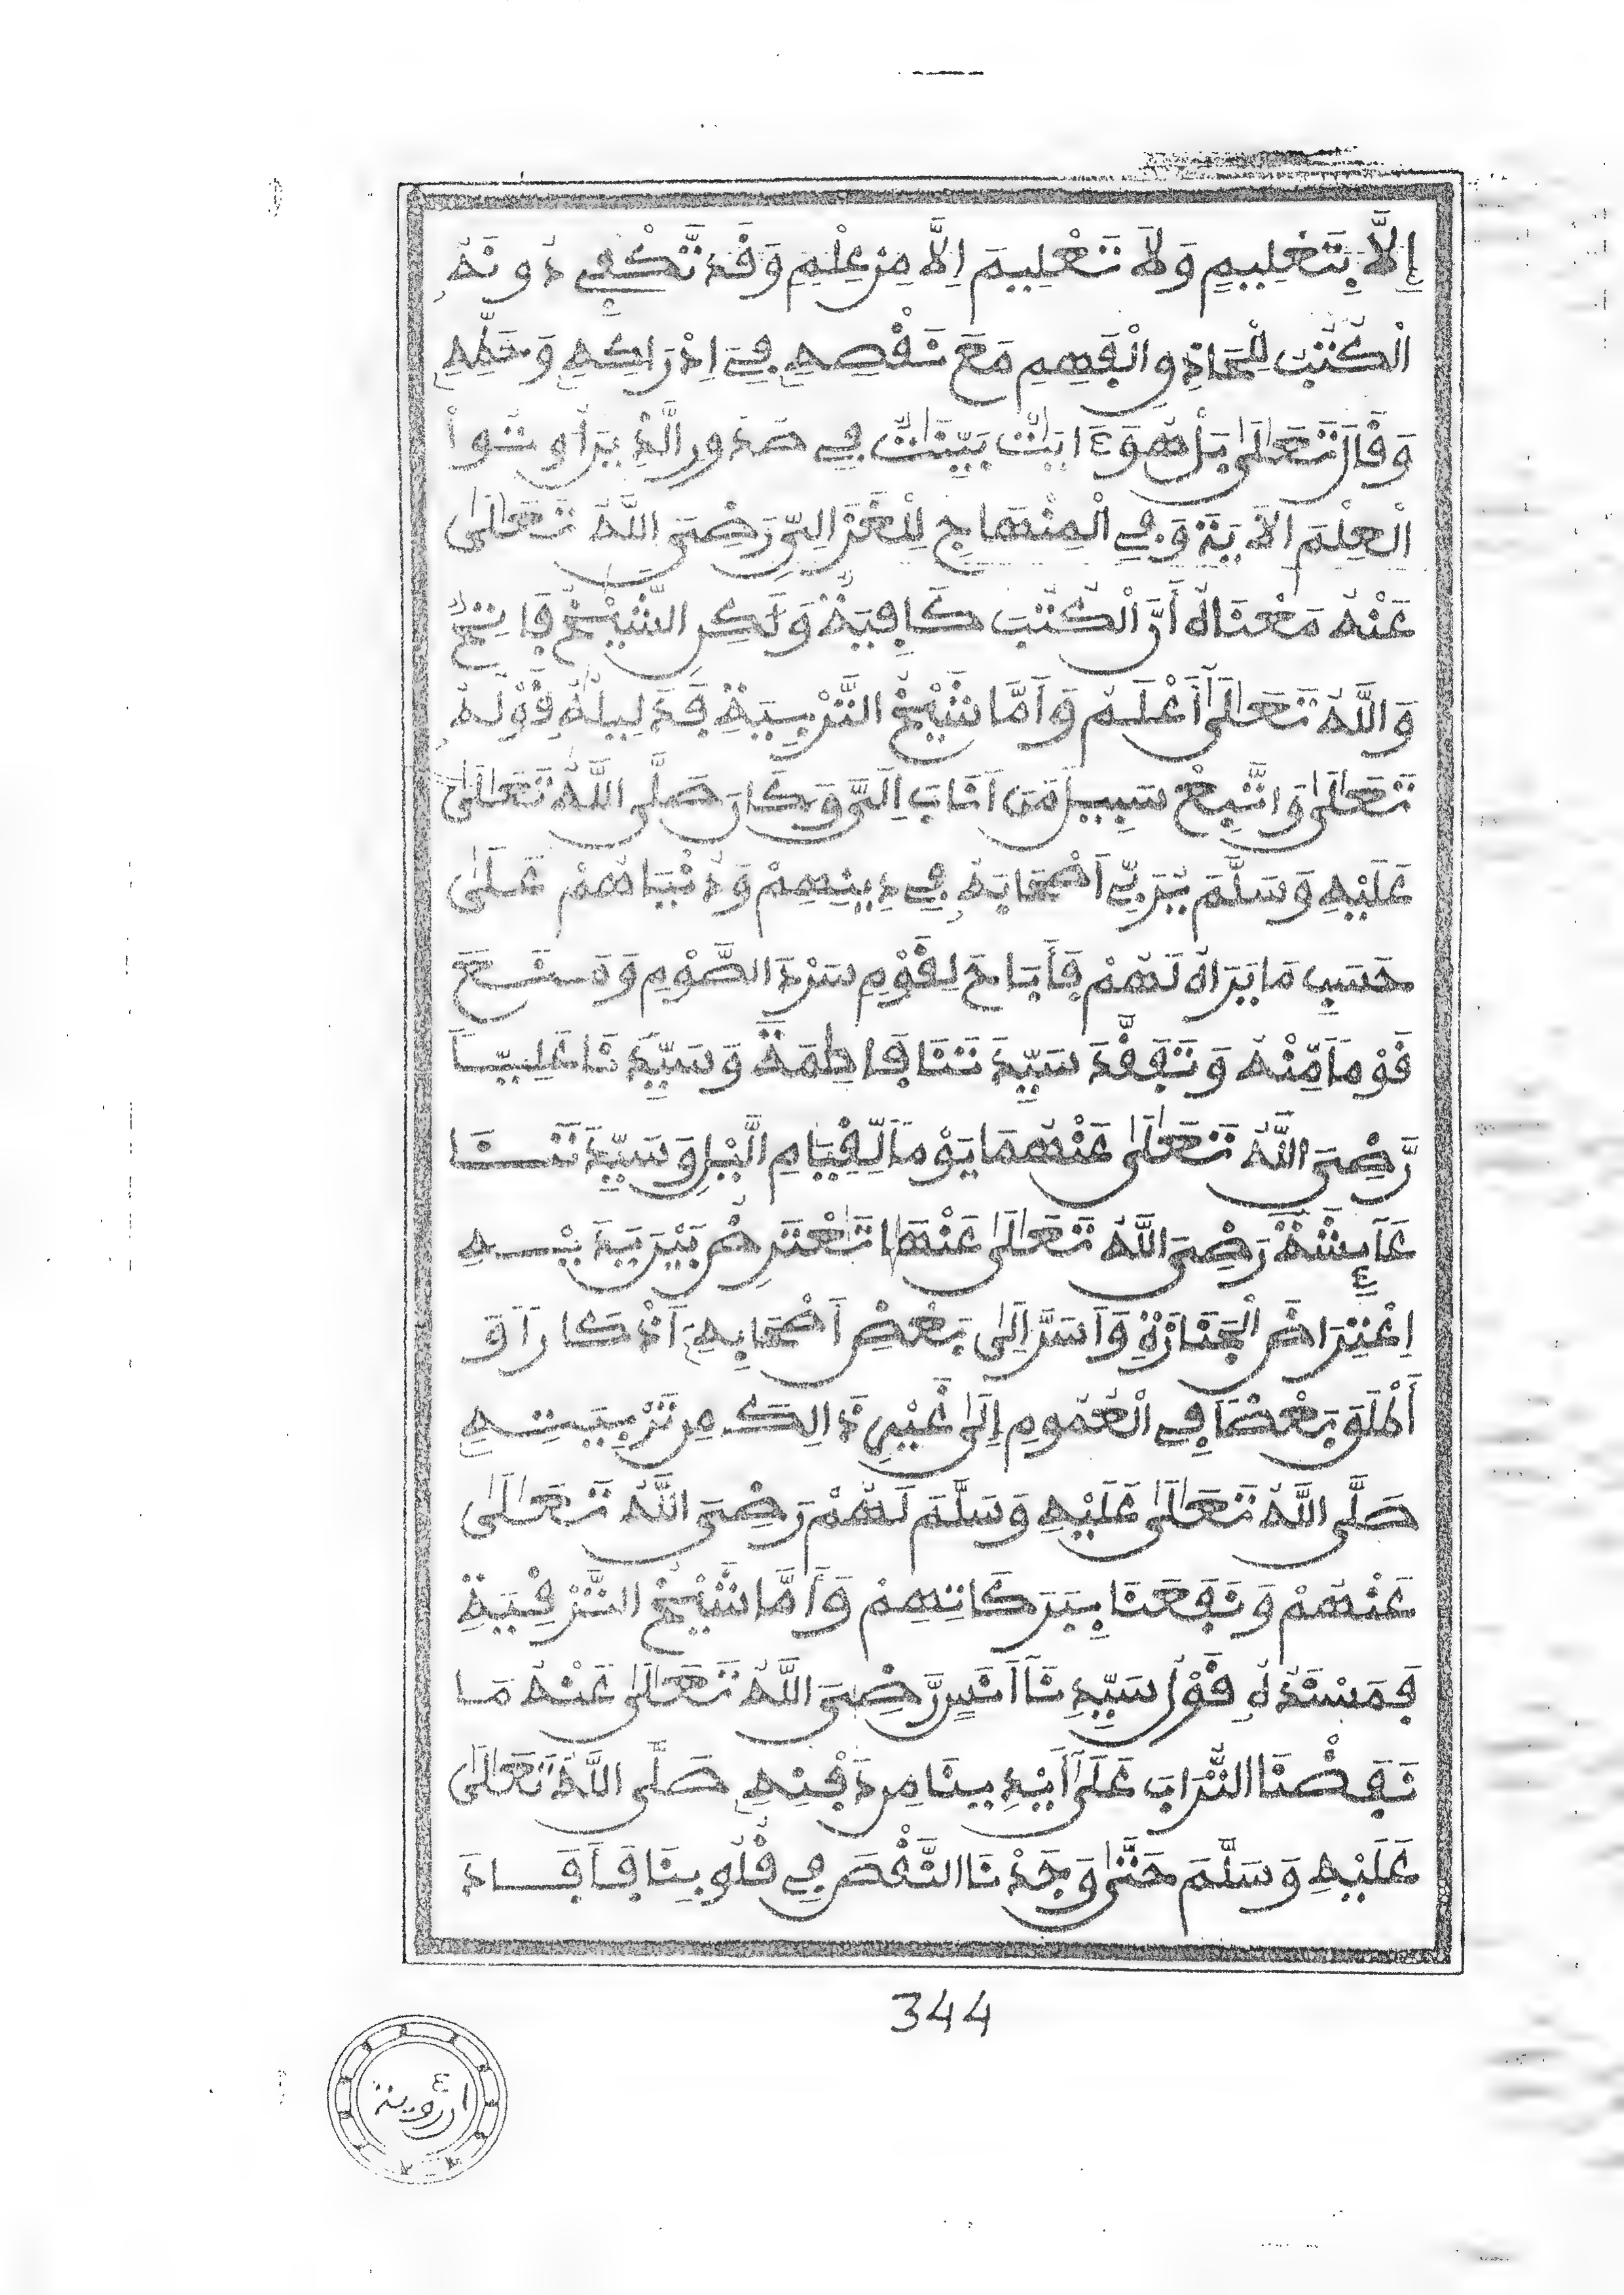 إِلَّا بِتَعْلِيمٍ وَلَا تَعْلِيمَ اِلَّا مِن عِلْمٍ وَقَد تَّكْفِي دُونَهُ
الْكُتُبُ لِلْحَاذِقِ الْفَهِمِ مَعَ نَقْصِهِ فِي اِدْرَاكِهِ وَحَظِّهِ
وَقَالَ تَعَالَىٰ بَلْ هُوَ ءَايَاتٌ بَيِّنَاتٌ فِي صُدُورِ الَّذِينَ أُوتُوا
الْعِلْمَ الْآيَةَ وَفِي الْمِنْهَاجِ لِلْغَزَالِيِّ رَضِيَ اللَّهُ تَعَالَىٰ
عَنْهُ مَعْنَاهُ أَنَّ الْكُتُبَ كَافِيَةٌ وَلَكِنِ الشَّيْخُ فَاتِحٌ
وَاللَّهُ تَعَالَىٰ أَعْلَمُ وَأَمَّا شَيْخُ التَّرْبِيَةِ فَدَلِيلُهُ قَوْلُهُ
تَعَالَىٰ وَاتَّبِعْ سَبِيلَ مَنَ اَنَابَ اِلَيَّ وَكَانَ صَلَّى اللَّهُ تَعَالَىٰ
عَلَيْهِ وَسَلَّمَ يُرَبِّي أَصْحَابَهُ فِي دِينِهِمْ وَدُنْيَاهُمْ عَلَىٰ
حَسَبِ مَا يَرَاهُ لَهُمْ فَأَبَاحَ لِقَوْمٍ سَرْدَ الصَّوْمِ وَمَنَعَ
قَوْماً مِّنْهُ وَتَفَقَّدَ سَيِّدَتَنَا فَاطِمَةَ وَسَيِّدَنَا عَلِيّاً
رَّضِيَ اللَّهُ تَعَالَىٰ عَنْهُمَا يَوْماً لِّقِيَامِ الَّيْلِ وَسَيِّدَتَنَا
عَائِشَةُ رَضِيَ اللَّهُ تَعَالَىٰ عَنْهَا تَعْتَرِضُ بَيْنَ يَدَيْهِ
اِعْتِرَاضَ الْجَنَازَةِ وَأَسَرَّ اِلَىٰ بَعْضِ أَصْحَابِهِ أَذْكَاراً وَ
أَطْلَقَ بَعْضاً فِي الْعُمُومِ إِلَىٰ غَيْرِ ذَالِكَ مِن تَرْبِيَتِهِ
صَلَّى اللَّهُ تَعَالَىٰ عَلَيْهِ وَسَلَّمَ لَهُمْ رَضِيَ اللَّهُ تَعَالَىٰ
عَنْهُمْ وَنَفَعَنَا بِبَرَكَاتِهِمْ وَأَمَّا شَيْخُ التَّرْقِيَةِ
فَمُسْتَنَدُهُ قَوْلُ سَيِّدِنَا أَنَسٍ رَّضِيَ اللَّهُ تَعَالَىٰ عَنْهُ مَا
نَفَضْنَا التُّرَابَ عَلَىٰ أَيْدِينَا مِن دَفْنِهِ صَلَّى اللَّهُ تَعَالَىٰ
عَلَيْهِ وَسَلَّمَ حَتَّىٰ وَجَدْنَا النَّقْصَ فِي قُلُوبِنَا فَأَفَادَ
344